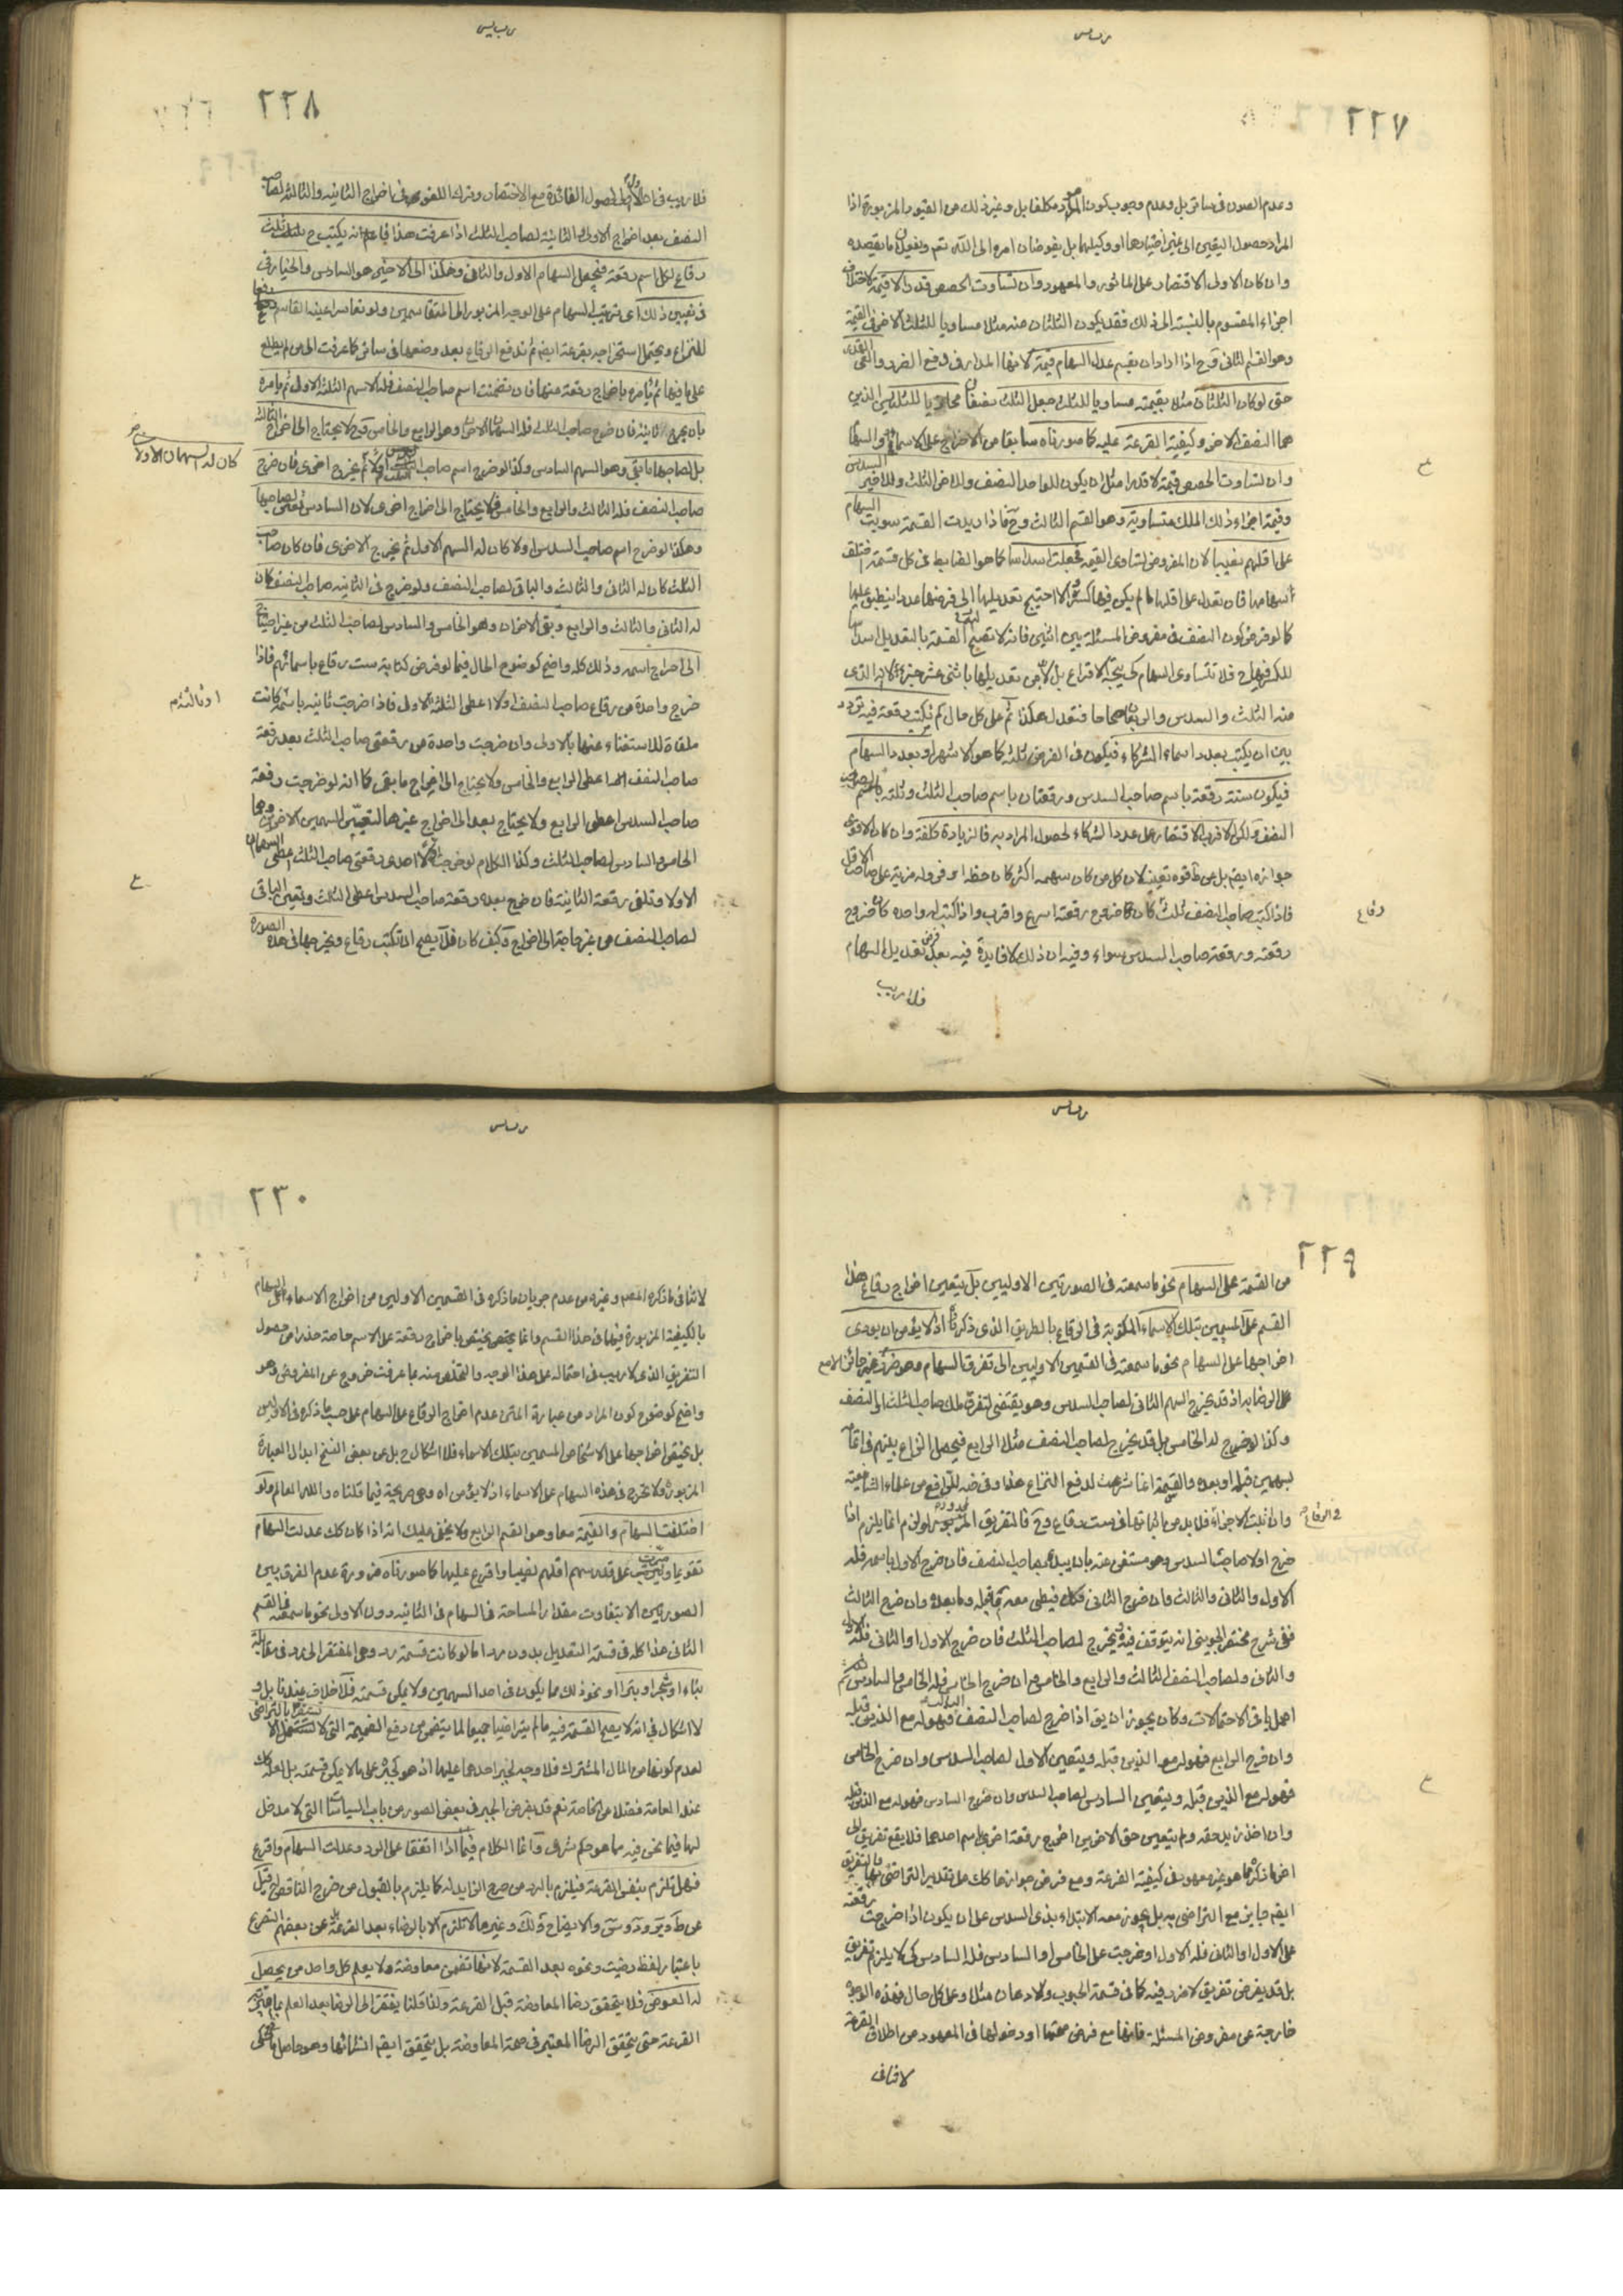 ٢٢٧
وعدم الصون في ساتر بل وعدم وجوب كون المراد مكلفا بل وغير ذلك من القيود المزبورة اذا
المراد حصول اليقين الى غير اختيارهما او وكيلهما بل يفوضان امره الى الله تعم ويفعلان ما يقصده
وان كان الاولى الاقتصار على الماثور والمعهود وان تساوت الحصص قدرا لا قيمة لاختلاف
اجزاء المقسوم بالنسبة الى ذلك فقد يكون الثلثان منه مثلا مساويا للثلث الاخر في القيمة
وهو القسم الثاني وح اذا ارادا ان يقسم عدلت السهام قيمة لانها المدار في دفع الضرر والتعدى
حتى لو كان الثلثان مثلا بقيمته مساويا للثلث جعل الثلث نصفا محاذيا للثلثين الذين
هما النصف الاخر وكيفية القرعة عليه كما صورناه سابقا من الاخراج على الاسماء والسهام
وان تساوت الحصص قيمة لا قدرا مثل ان يكون للواحد النصف وللاخر الثلث وللاخير السدس
وقيمة اجزاء ذلك الملك متساوية وهو القسم الثالث وح فاذا اريدت القسمة سويت السهام
على اقلهم نصيبا لان المفروض تساوى القيمة فجعلت اسداسا كما هو الضابط في كل قسمة اختلف
اسهامها فان تعدل على اقلها ما لم يكن فيها كسر والا احتيج تعديلها الى فرضها عددا ينطبق عليها
كما لو فرض كون النصف في مفروض المسئلة بين اثنين فانه لا تصح القسمة بالتعديل اسداسا
للكسر فيها ح فلا تتساوى السهام كى يتجه الاقراع بل لابد من تعديلها باثنى عشر جزءا لانه الذى
منه الثلث والسدس والربعان صحاحا فتعدل هكذا ثم على كل حال كم يكتب رقعة فيه تردد
بين ان يكتب بعدد اسماء الشركاء فيكون في الفرض ثلثة كما هو الاشهر او بعدد السهام
فيكون ستة رقعة باسم صاحب السدس ورقعتان باسم صاحب الثلث وثلثة باسم صاحب
النصف ولكن الاقرب الاقتصار على عدد الشركاء لحصول المراد به فالزيادة كلفة وان كان الاقوى
جوازه ايضم بل عن ط قوه تعين لان كل من كان سهمه اكثر كان حظه اوفر وله مزية على صاحب الاقل
فاذا كتب صاحب النصف ثلث كان خروج رقعته اسرع واقرب واذا كتب له واحده كان خروج
رقعته ورقعة صاحب السدس سواء وفيه ان ذلك لا فايدة فيه بعد فرض تعديل السهام
فلا ريب
ع
رقاع
٢٢٨
فلا ريب في ان الاولى لحصول الفائدة مع الاختصار وترك اللغو في اخراج الثانيه والثالثه لصاحب
النصف بعد اخراج الاولى والثانية لصاحب الثلث اذا عرفت هذا فاعلم انه يكتب ح ثلث
رقاع لكل اسم رقعة فيجعل السهام الاول والثاني وهكذا الى الاخير هو السادس والخيار في
في تعيين ذلك اى ترتيب السهام على الوجه المزبور الى المتقاسمين ولو تعاسرا عينه القاسم دفعا
للنزاع ويحتمل استخراجه بقرعة ايضم ثم تدفع الرقاع بعد وضعها في ساتر كما عرفت الى من لم يطلع
على ما فيها ثم يامره باخراج رقعة منها فان تضمنت اسم صاحب النصف فله الاسهم الثلثة الاول ثم يامره
بان يخرج ثانية فان خرج صاحب الثلث فله السهمان الاخران وهو الرابع والخامس وح لا يحتاج الى اخراج الثالث
بل لصاحبها ما بقى وهو السهم السادس وكذا لو خرج اسم صاحب السدس اولا ثم يخرج اخرى فان خرج
صاحب النصف فله الثالث والرابع والخامس فلا يحتاج الى اخراج اخرى لان السادس تعين لصاحبها
وهكذا لو خرج اسم صاحب السدس اولا كان له السهم الاول ثم يخرج الاخرى فان كان صاحب
الثلث كان له الثاني والثالث والباقى لصاحب النصف ولو خرج في الثانيه صاحب النصف كان
له الثاني والثالث والرابع وبقى الاخران وهو الخامس والسادس لصاحب الثلث من غير احتياج
الى اخراج اسمه وذلك كله واضح كوضوح الحال فيما لو فرض كتابة ست رقاع باسمائهم فاذا
خرج واحدة من رقاع صاحب النصف اولا اعطى الثلثة الاول فاذا خرجت ثانيه باسمه كانت
ملقاة للاستغناء عنها بالاولى وان خرجت واحدة من رقعتى صاحب الثلث بعد رقعة
صاحب النصف اعطى الرابع والخامس ولا يحتاج الى اخراج ما بقى كما انه لو خرجت رقعة
صاحب السدس اعطى الرابع ولا يحتاج بعد الى اخراج غيرها لتعين السهمين الاخرين وهما
الخامس والسادس لصاحب الثلث وكذا الكلام لو خرجت اولا احدى رقعتى صاحب الثلث اعطى السهمان
الاولا وتلقى رقعة الثانية فان خرج بعده رقعة صاحب السدس اعطى الثالث وتعين الباقى
لصاحب النصف من غير حاجة الى اخراج وكيف كان فلا يصح ان تكتب رقاع ويخرجها في هذه الصورة
كان له السهمان الاولان
او ثالثة
ع
٢٢٩
من القسمة على السهام نحو ما سمعته في الصورتين الاوليين بل يتعين اخراج رقاع هذا
القسم على المسمين بتلك الاسماء المكتوبة في الرقاع بالطريق الذى ذكرناه اذ لا يؤمن ان يؤدى
اخراجها على السهام نحو ما سمعته في القسمين الاوليين الى تفرق السهام وهو ضرر غير جائز الا مع
على الرضا به اذ قد يخرج السهم الثاني لصاحب السدس وهو يقتضى لتفرق ملك صاحب الثلث او النصف
وكذا لو خرج له الخامس بل قد يخرج لصاحب النصف مثلا الرابع فيحصل النزاع بينهم في اتمامه
بسهمين قبله او بعده والقسمة انما شرعت لدفع النزاع هذا وفي ضه للرافعى من علماء الشافعية
وان اثبت الاجزاء فلا بد من اثباتها في ست رقاع وح فالتفريق المزبور لو لزم انما يلزم اذا
خرج اولا صاحب السدس وهو مستغن عنه بان يبدء بصاحب النصف فان خرج الاول باسمه فله
الاول والثاني والثالث وان خرج الثاني فكك فيعطى معه ما قبله وما بعده وان خرج الثالث
ففى شرح مختصر الجوينى انه يتوقف فيه ويخرج لصاحب الثلث فان خرج الاول او الثانى فله الاول
والثانى ولصاحب النصف الثالث والرابع والخامس وان خرج الخامس فله الخامس والسادس ثم
اهمل باقى الاحتمالات وكان يجوز ان يق اذا خرج لصاحب النصف الثالث فهو له مع اللذين قبله
وان خرج الرابع فهو له مع اللذين قبله ويتعين الاول لصاحب السدس وان خرج الخامس
فهو له مع الذين قبله ويتعين السادس لصاحب السدس وان خرج السادس فهو له مع الذين قبله
وان اخذ زيد حقه ولم يتعين حق الاخرين اخرج رقعة اخرى باسم احدهما فلا يقع تفريق الى
اخر ما ذكره مما هو غير معهود في كيفية القرعة ومع فرض جوازها كك على تقدير التراضى بها فالتفريق
ايضم جايز مع التراضى به بل يجوز معه الابتداء بذى السدس على ان يكون اذا خرجت رقعته
على الاول او الثانى فله الاول او خرجت على الخامس او السادس فله السادس كى لا يلزم تفريق
بل قد يفرض تفريق لا ضرر فيه كما في قسمة الحبوب والادهان مثلا وعلى كل حال فهذه الوجوه
خارجة عن مفروض المسئلة فانها مع فرض صحتها او دخولها في المعهود من اطلاق القرعة
لا تنافى
في الرقاع
ع
٢٣٠
لا تنافى ما ذكره المصم وغيره من عدم جريان ما ذكره في القسمين الاوليين من اخراج الاسماء على السهام
بالكيفية المزبورة فيهما في هذا القسم وانما يختص باخراج رقعة على الاسم خاصة حذرا من حصول
التفريق الذى لا ريب في احتماله على هذا الوجه والتخلص منه بما عرفت خروج عن المفروض وهو
واضح كوضوح كون المراد من عبارة المتن عدم اخراج الرقاع على السهام على حسب ما ذكره في الاوليين
بل يختص اخراجها على الاشخاص المسمين بتلك الاسماء فلا اشكال ح بل عن بعض النسخ ابدال العبارة
المزبورة ولا تخرج في هذه السهام على الاسماء اذ لا يؤمن اه وهى صريحة فيما قلناه والله العالم ولو
اختلفت السهام والقيمة معا وهو القسم الرابع ولا يخفى عليك انه اذا كان كك عدلت السهام
تقويما وميزت على قدر سهم اقلهم نصيبا واقرع عليها كما صورناه ضرورة عدم الفرق بين
الصورتين الا بتفاوت مقدار المساحة في السهام في الثانيه دون الاولى نحو ما سمعته في القسم
الثانى هذا كله في قسمة التعديل بدون رد اما لو كانت قسمة رد وهى المفتقر الى رد في مقابلة
بناء او شجر او بئر او نحو ذلك مما يكون في احد السهمين ولا يمكن قسمته فلا خلاف عندنا بل و
لا اشكال في انه لا يصح القسمة فيه ما لم يتراضيا جميعا لما يتضمن من دفع الضميمة التى لا تستقر الا بالتراضى
لعدم كونها من المال المشترك فلا وجه لجبر احدهما عليها اذ هو كجبره على ما لا يمكن قسمته بل لعله كك
عند العامة فضلا عن الخاصة نعم قد يفرض الجبر في بعض الصور من باب السياسات التى لا مدخل
لها فيما نحن فيه مما هو حكم شرعى وانما الكلام فيما اذا اتفقا على الرد وعدلت السهام واقرع
فهل تلزم بنفس القرعة فيلزم بالرد من خرج الزايد له كما يلزم بالقبول من خرج الناقص له قيل
عن ط ود و س والايضاح ولك وغيرها لا تلزم الا بالرضاء بعد القرعة بل عن بعضهم التصريح
باعتبار لفظ رضيت ونحوه بعد القسمة لانها تتضمن معاوضة ولا يعلم كل واحد من يحصل
له العوض فلا يتحقق رضا المعاوضة قبل القرعة ولذا قلنا يفتقر الى الرضا بعد العلم بما ميزته
القرعة حتى يتحقق الرضا المعتبر في صحة المعاوضة بل يتحقق ايضم انشائها وهو حاصل